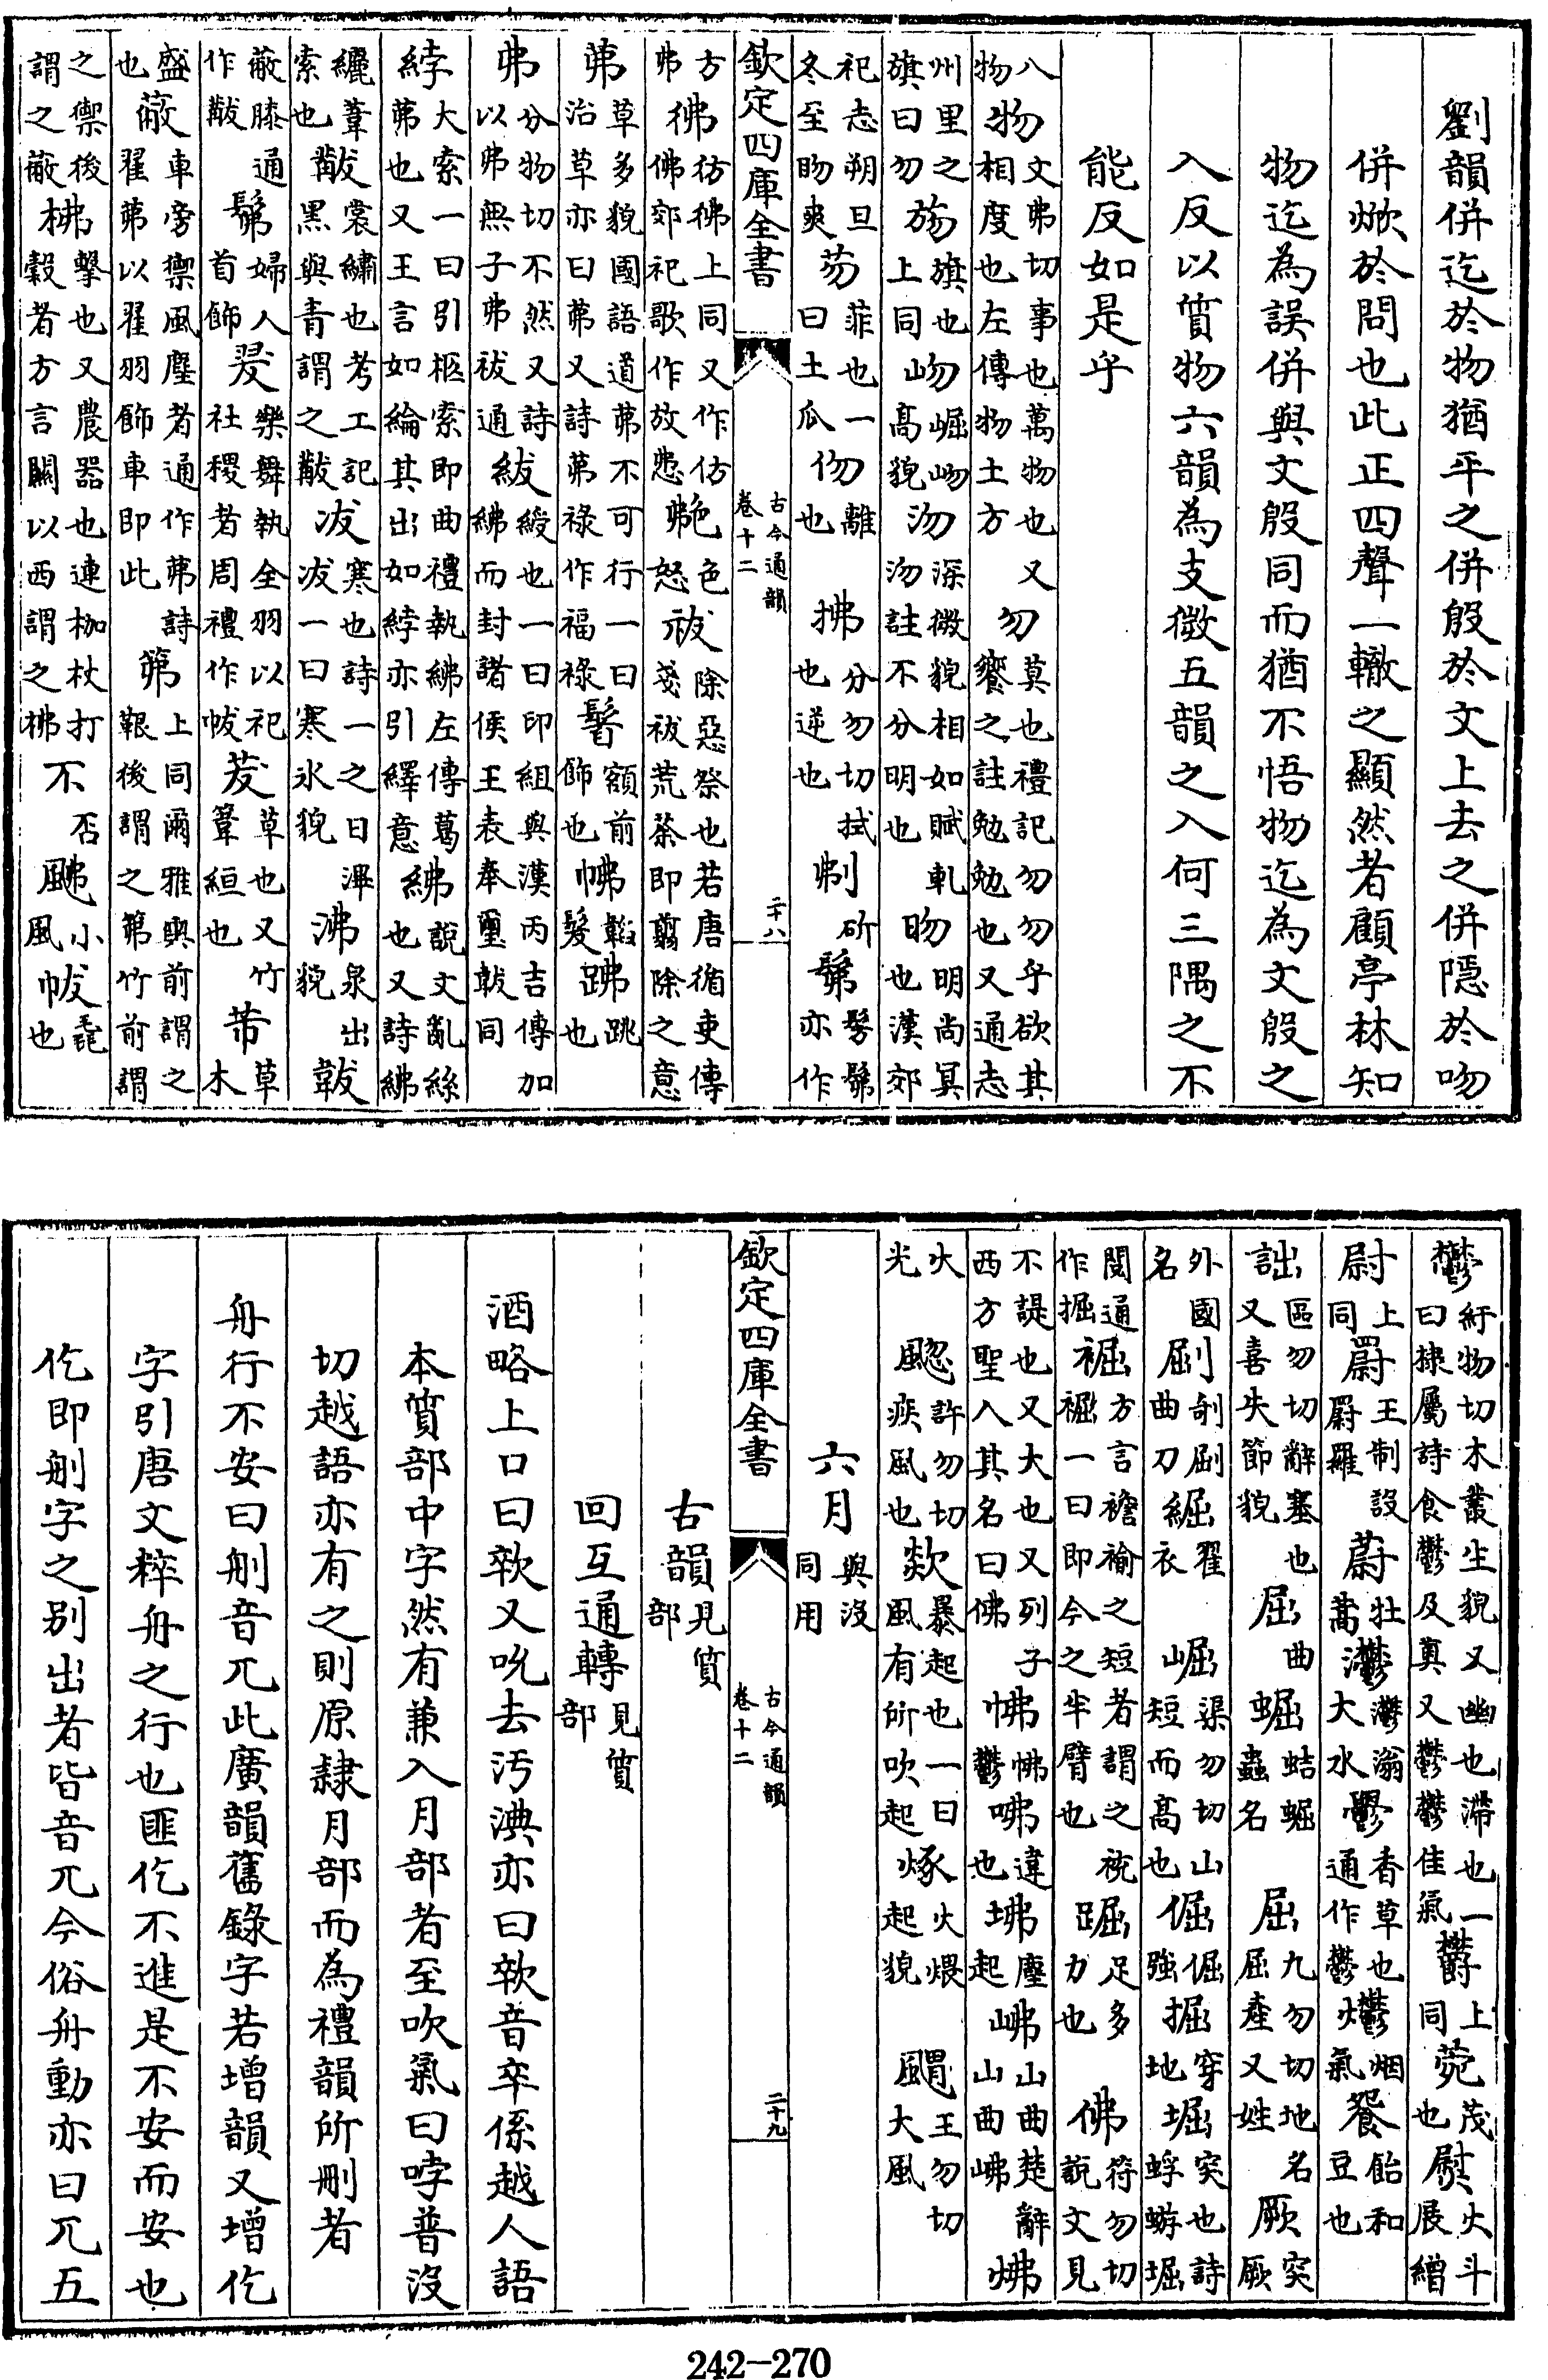 劉韻併迄於物猶平之併殷於文上去之併隱於吻
併焮於問也此正四聲一轍之顯然者顧亭林知
物迄為誤併與文殷同而猶不悟物迄為文殷之
入反以質物六韻為支微五韻之入何三隅之不
能反如是乎
八物物文弗切事也萬物也又相度也左傳物土方勿莫也禮記勿勿乎欲其饗之註勉勉也又通志
州里之旗曰勿㫚旗也上同岉崛岉高貌沕深微貌相如賦軋沕註不分明也昒明也漢郊
祀志朔旦冬至昒爽芴菲也一曰土瓜伆離也拂分勿切拭也逆也刜斫髴髣髴亦作
欽定四庫全書
古今通韻
卷十二
二十八
方弗彿彷彿上同又作仿佛郊祀歌作放怫艴色怒色祓除惡祭也若唐循吏傳戔祓荒茶即翦除之意
茀草多貌國語道茀不可行一曰治草亦曰茀又詩茀祿作福祿髴額前飾也怫韜髮跳也
弗分物切不然又詩以弗無子弗祓通紱綬也一曰印組與漢丙吉傳加紼而封諸侯王表奉璽韍同
綍大索一曰引柩索即曲禮執紼左傳葛茀也又王言如綸其出如綍亦引繹意紼說文亂絲也又詩紼
纚葦索也黻裳繡也考工記黑與青謂之黻冹寒也詩一之日渾冹一曰寒氷貌沸泉出貌韍
蔽膝通作黻髴婦人首飾翇樂舞執全羽以祀社稷者周禮作帗茇草也又竹葦絙也芾草木
盛也蔽車旁禦風塵者通作茀詩翟茀以翟羽飾車即此第上同爾雅輿前謂之艱後謂之第竹前謂
之禦後謂之蔽柫擊也又農器也連枷杖打穀者方言關以西謂之柫不否颫小風帗毳也
鬱紆物切木叢生貌又幽也滯也一曰棣屬詩食鬱及薁又鬱鬱佳氣欝上同菀茂也熨火斗展繒
尉上同罻王制設罻羅蔚牡蒿灪灪滃大水鬱香草也通作鬱爩烟氣餐飴和豆也
詘區勿切辭塞也又喜失節貌屈曲𧌑蛣𧌑蟲名屈九勿切地名屈産又姓厥突厥
外國名剧剞剧曲刀䘿翟衣崛渠勿切山短而高也倔倔強掘穿地堀突也詩蜉蝣堀
閱通作掘裾方言襜褕之短者謂之裋裾一曰即今之半臂也䠇足多力也佛符勿切說文見
不諟也又大也又列子西方聖人其名曰佛怫怫鬱咈違也坲塵起岪山曲楚辭山曲岪炥
火光颮許勿切疾風也欻暴起也一曰風有所吹起㷄火煨起貌䬑王勿切大風
六月與沒同用
欽定四庫全書
古今通韻
卷十二
二十九
古韻見質部
回互通轉見質部
酒略上口曰欶又吮去汚淟亦曰欶音卒係越人語
本質部中字然有兼入月部者至吹氣曰哱普沒
切越語亦有之則原隸月部而為禮韻所刪者
舟行不安曰刖音兀此廣韻舊錄字若增韻又增仡
字引唐文粹舟之行也匪仡不進是不安而安也
仡即刖字之别出者皆音兀今俗舟動亦曰兀五
242-270